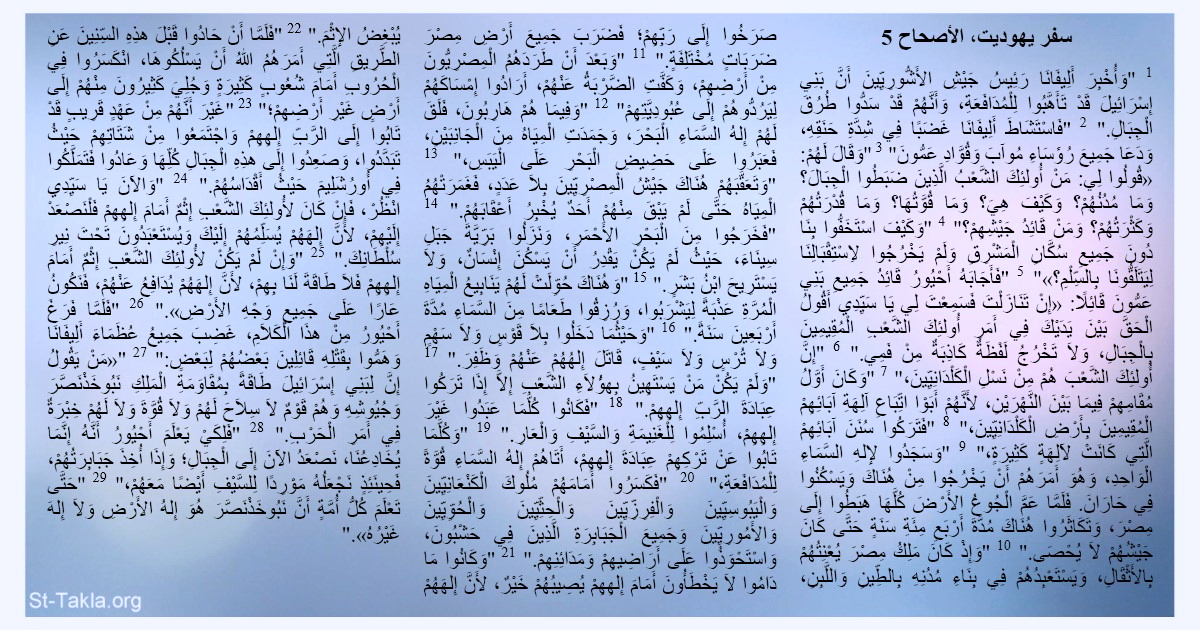 سفر يهوديت، الأصحاح 5
1 "وَأُخْبِرَ أَلِيفَانَا رَئِيسُ جَيْشِ الأَشُّورِيِّينَ أَنَّ بَنِي
إِسْرَائِيلَ قَدْ تَأَهَّبُوا لِلْمُدَافَعَةِ، وَأَنَّهُمْ قَدْ سَدُّوا طُرُقَ
الْجِبَالِ." 2 "فَاسْتَشَاطَ أَلِيفَانَا غَضَبًا فِي شِدَّةِ حَنَقِهِ،
وَدَعَا جَمِيعَ رُؤَسَاءِ مُوآبَ وَقُوَّادِ عَمُّونَ" 3 "وَقَالَ لَهُمْ:
«قُولُوا لِي: مَنْ أُولئِكَ الشَّعْبُ الَّذِينَ ضَبَطُوا الْجِبَالَ؟
وَمَا مُدُنُهُمْ؟ وَكَيْفَ هِيَ؟ وَمَا قُوَّتُهَا؟ وَمَا قُدْرَتُهُمْ
وَكَثْرَتُهُمْ؟ وَمَنْ قَائِدُ جَيْشِهِمْ؟" 4 "وَكَيْفَ اسْتَخَفُّوا بِنَا
دُونَ جَمِيعِ سُكَّانِ الْمَشْرِقِ وَلَمْ يَخْرُجُوا لاِسْتِقْبَالِنَا
لِيَتَلَقَّوْنَا بِالسِّلْمِ؟»" 5 "فَأَجَابَهُ أَحْيُورُ قَائِدُ جَمِيعِ بَنِي
عَمُّونَ قَائِلًا: «إِنْ تَنَازَلْتَ فَسَمِعْتَ لِي يَا سَيِّدِي أَقُولُ
الْحَقَّ بَيْنَ يَدَيْكَ فِي أَمْرِ أُولئِكَ الشَّعْبِ الْمُقِيمِينَ
بِالْجِبَالِ، وَلاَ تَخْرُجُ لَفْظَةٌ كَاذِبَةٌ مِنْ فَمِي." 6 "إِنَّ
أُولئِكَ الشَّعْبَ هُمْ مِنْ نَسْلِ الْكَلْدَانِيِّينَ،" 7 "وَكَانَ أَوَّلُ
مُقَامِهِمْ فِيمَا بَيْنَ النَّهْرَيْنِ، لأَنَّهُمْ أَبَوْا اتِّبَاعَ آلِهَةِ آبَائِهِمِ
الْمُقِيمِينَ بِأَرْضِ الْكَلْدَانِيِّينَ،" 8 "فَتَرَكُوا سُنَنَ آبَائِهِمِ
الَّتِي كَانَتْ لآلِهَةٍ كَثِيرَةٍ،" 9 "وَسَجَدُوا لإِلهِ السَّمَاءِ
الْوَاحِدِ، وَهُوَ أَمَرَهُمْ أَنْ يَخْرُجُوا مِنْ هُنَاكَ وَيَسْكُنُوا
فِي حَارَانَ. فَلَمَّا عَمَّ الْجُوعُ الأَرْضَ كُلَّهَا هَبَطُوا إِلَى
مِصْرَ، وَتَكَاثَرُوا هُنَاكَ مُدَّةَ أَرْبَعِ مِئَةِ سَنَةٍ حَتَّى كَانَ
جَيْشُهُمْ لاَ يُحْصَى." 10 "وَإِذْ كَانَ مَلِكُ مِصْرَ يُعْنِتُهُمْ
بِالأَثْقَالِ، وَيَسْتَعْبِدُهُمْ فِي بِنَاءِ مُدُنِهِ بِالطِّينِ وَاللَّبِنِ،
صَرَخُوا إِلَى رَبِّهِمْ؛ فَضَرَبَ جَمِيعَ أَرْضِ مِصْرَ
ضَرَبَاتٍ مُخْتَلِفَةٍ." 11 "وَبَعْدَ أَنْ طَرَدَهُمُ الْمِصْرِيُّونَ
مِنْ أَرْضِهِمْ، وَكَفَّتِ الضَّرْبَةُ عَنْهُمْ، أَرَادُوا إِمْسَاكَهُمْ
لِيَرُدُّوهُمْ إِلَى عُبُودِيَّتِهِمْ" 12 "وَفِيمَا هُمْ هَارِبُونَ، فَلَقَ
لَهُمْ إِلهُ السَّمَاءِ الْبَحْرَ، وَجَمَدَتِ الْمِيَاهُ مِنَ الْجَانِبَيْنِ،
فَعَبَرُوا عَلَى حَضِيضِ الْبَحْرِ عَلَى الْيَبَسِ،" 13
"وَتَعَقَّبَهُمْ هُنَاكَ جَيْشُ الْمِصْرِيِّينَ بِلاَ عَدَدٍ، فَغَمَرَتْهُمُ
الْمِيَاهُ حَتَّى لَمْ يَبْقَ مِنْهُمْ أَحَدٌ يُخْبِرُ أَعْقَابَهُمْ." 14
"فَخَرَجُوا مِنَ الْبَحْرِ الأَحْمَرِ، وَنَزَلُوا بَرِّيَّةَ جَبَلِ
سِينَاءَ، حَيْثُ لَمْ يَكُنْ يَقْدِرُ أَنْ يَسْكُنَ إِنْسَانٌ، وَلاَ
يَسْتَرِيحَ ابْنُ بَشَرٍ." 15 "وَهُنَاكَ حُوِّلَتْ لَهُمْ يَنَابِيعُ الْمِيَاهِ
الْمُرَّةِ عَذْبَةً لِيَشْرَبُوا، وَرُزِقُوا طَعَامًا مِنَ السَّمَاءِ مُدَّةَ
أَرْبَعِينَ سَنَةً." 16 "وَحَيْثُمَا دَخَلُوا بِلاَ قَوْسٍ وَلاَ سَهْمٍ
وَلاَ تُرْسٍ وَلاَ سَيْفٍ، قَاتَلَ إِلهُهُمْ عَنْهُمْ وَظَفِرَ." 17
"وَلَمْ يَكُنْ مَنْ يَسْتَهِينُ بِهؤُلاَءِ الشَّعْبِ إِلاَّ إِذَا تَرَكُوا
عِبَادَةَ الرَّبِّ إِلهِهِمْ." 18 "فَكَانُوا كُلَّمَا عَبَدُوا غَيْرَ
إِلهِهِمْ، أُسْلِمُوا لِلْغَنِيمَةِ وَالسَّيْفِ وَالْعَارِ." 19 "وَكُلَّمَا
تَابُوا عَنْ تَرْكِهِمْ عِبَادَةَ إِلهِهِمْ، أَتَاهُمْ إِلهُ السَّمَاءِ قُوَّةً
لِلْمُدَافَعَةِ،" 20 "فَكَسَرُوا أَمَامَهُمْ مُلُوكَ الْكَنْعَانِيِّينَ
وَالْيَبُوسِيِّينَ وَالْفِرِزِّيِّينَ وَالْحِثِّيِّينَ وَالْحُوِّيِّينَ
وَالأَمُورِيِّينَ وَجَمِيعَ الْجَبَابِرَةِ الَّذِينَ فِي حَشْبُونَ،
وَاسْتَحْوَذُوا عَلَى أَرَاضِيهِمْ وَمَدَائِنِهِمْ." 21 "وَكَانُوا مَا
دَامُوا لاَ يَخْطَأُونَ أَمَامَ إِلهِهِمْ يُصِيبُهُمْ خَيْرٌ، لأَنَّ إِلهَهُمْ
يُبْغِضُ الإِثْمَ." 22 "فَلَمَّا أَنْ حَادُوا قَبْلَ هذِهِ السِّنِينَ عَنِ
الطَّرِيقِ الَّتِي أَمَرَهُمُ اللهُ أَنْ يَسْلُكُوهَا، انْكَسَرُوا فِي
الْحُرُوبِ أَمَامَ شُعُوبٍ كَثِيرَةٍ وَجُلِيَ كَثِيرُونَ مِنْهُمْ إِلَى
أَرْضٍ غَيْرِ أَرْضِهِمْ؛" 23 "غَيْرَ أَنَّهُمْ مِنْ عَهْدٍ قَرِيبٍ قَدْ
تَابُوا إِلَى الرَّبِّ إِلهِهِمْ وَاجْتَمَعُوا مِنْ شَتَاتِهِمْ حَيْثُ
تَبَدَّدُوا، وَصَعِدُوا إِلَى هذِهِ الْجِبَالِ كُلِّهَا وَعَادُوا فَتَمَلَّكُوا
فِي أُورُشَلِيمَ حَيْثُ أَقْدَاسُهُمْ." 24 "وَالآنَ يَا سَيِّدِي
انْظُرْ، فَإِنْ كَانَ لأُولئِكَ الشَّعْبِ إِثْمٌ أَمَامَ إِلهِهِمْ فَلْنَصْعَدْ
إِلَيْهِمْ، لأَنَّ إِلهَهُمْ يُسَلِّمُهُمْ إِلَيْكَ وَيُسْتَعْبَدُونَ تَحْتَ نِيرِ
سُلْطَانِكَ" 25 "وَإِنْ لَمْ يَكُنْ لأُولئِكَ الشَّعْبِ إِثْمٌ أَمَامَ
إِلهِهِمْ فَلاَ طَاقَةَ لَنَا بِهِمْ، لأَنَّ إِلهَهُمْ يُدَافِعُ عَنْهُمْ، فَنَكُونُ
عَارًا عَلَى جَمِيعِ وَجْهِ الأَرْضِ»." 26 "فَلَمَّا فَرَغَ
أَحْيُورُ مِنْ هذَا الْكَلاَمِ، غَضِبَ جَمِيعُ عُظَمَاءِ أَلِيفَانَا
وَهَمُّوا بِقَتْلِهِ قَائِلِينَ بَعْضُهُمْ لِبَعْضٍ:" 27 "«مَنْ يَقُولُ
إِنَّ لِبَنِي إِسْرَائِيلَ طَاقَةً بِمُقَاوَمَةِ الْمَلِكِ نَبُوخَذْنَصَّرَ
وَجُيُوشِهِ وَهُمْ قَوْمٌ لاَ سِلاَحَ لَهُمْ وَلاَ قُوَّةَ وَلاَ لَهُمْ خِبْرَةٌ
فِي أَمْرِ الْحَرْبِ." 28 "فَلِكَيْ يَعْلَمَ أَحْيُورُ أَنَّهُ إِنَّمَا
يُخَادِعُنَا، نَصْعَدُ الآنَ إِلَى الْجِبَالِ؛ وَإِذَا أُخِذَ جَبَابِرَتُهُمْ،
فَحِينَئِذٍ نَجْعَلُهُ مَوْرِدًا لِلسَّيْفِ أَيْضًا مَعَهُمْ،" 29 "حَتَّى
تَعْلَمَ كُلُّ أُمَّةٍ أَنَّ نَبُوخَذْنَصَّرَ هُوَ إِلهُ الأَرْضِ وَلاَ إِلهَ
غَيْرُهُ»."
St-Takla.org